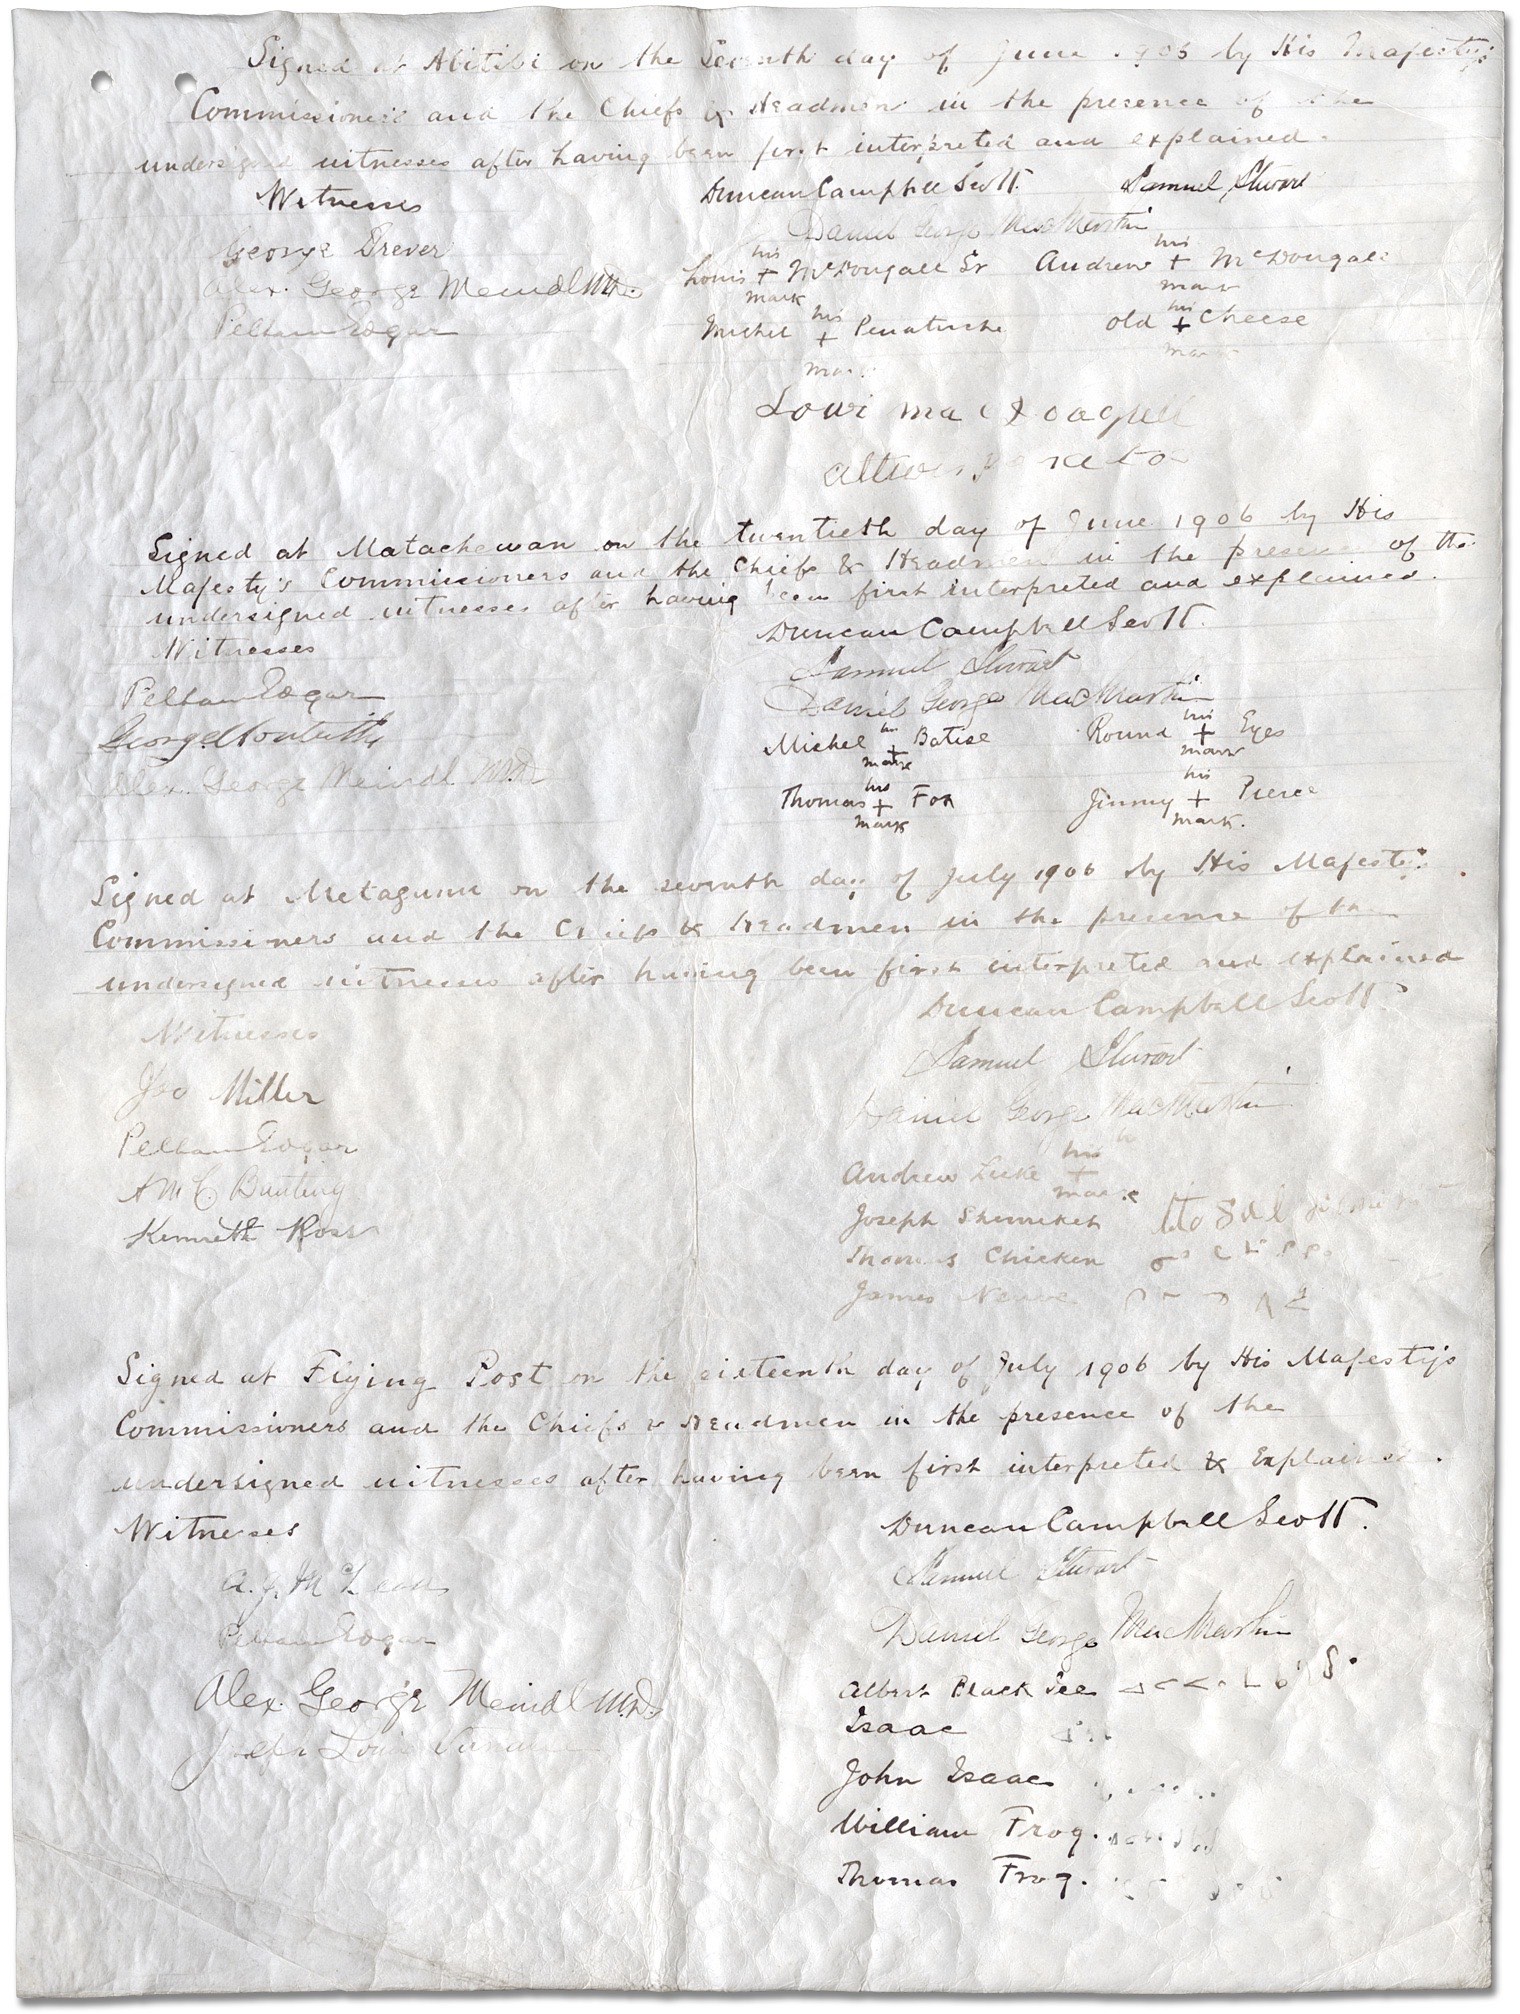 Signed at Abitibi on the Seventh day of June 1906 by His Majesty's
Commissioners and the Chiefs & Headmen in the presence of the
undersigned witnesses after having been first interpreted and explained.
Witnesses
Duncan Campbell Scott. Samuel Stewart
Daniel George MacMartin
George Drever
his his
Louis + McDougall Sr Andrew + McDougall
mark mark
Alex. George Meindl M.D.
Pelham Edgar
his his
Michel + Penatuche Old + Cheese
mark mark
Loui
Signed at Matachewan on the twentieth day of June 1906 by His
Majesty's Commissioners and the Chiefs & Headmen in the presence of the
undersigned witnesses after having been first interpreted and explained.
Witnesses
Duncan Campbell Scott.
Samuel Stewart
Daniel George MacMartin
Pelham Edgar
George Monteith
Alex. George Meindl M.D.
his his
Michel + Batise Round + Eyes
mark mark
his his
Thomas + Fox Jimmy + Pierce
mark mark.
Signed at Metagumi on the seventh day of July 1906 by His Majesty's
Commissioners and the Chiefs & Headmen in the presence of the
undersigned witnesses after having been first interpreted and explained
Witnesses
Duncan Campbell Scott
Samuel Stewart
Daniel George MacMartin
Jos Miller
Pelham Edgar
A M C. Bunting
Kenneth Ross
his
Andrew Luke +
mark
Joseph Shemeket
Thomas Chicken
James Neuve
Signed at Flying Post on the sixteenth day of July 1906 by His Majesty's
Commissioners and the Chiefs & Headmen in the presence of the
undersigned witnesses after having been first interpreted & Explained.
Witnesses
Duncan Campbell Scott.
Samuel Stewart
Daniel George MacMartin
A. J. McLeod
Pelham Edgar
Alex. George Meindl M.D.
Joseph Louis
Albert Black Ice
Isaac
John Isaac
William Frog.
Thomas Frog.